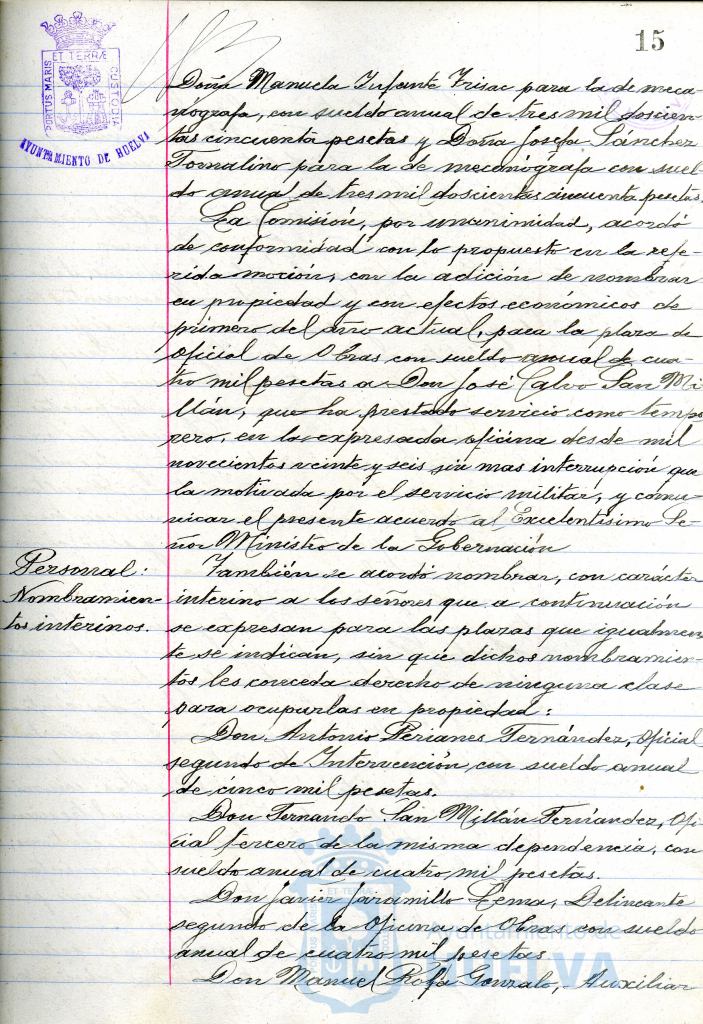 15
PORTUS MARIS ET TERRÆ CUSTODIA
AYUNTAMIENTO DE HUELVA
Doña Manuela Infante Frisac para la de meca-
nógrafa, con sueldo anual de tres mil doscien-
tas cincuenta pesetas y Doña Josefa Sánchez
Tornalino para la de mecanógrafa con suel-
do anual de tres mil doscientas cincuenta pesetas.
La Comisión, por unanimidad, acordó
de conformidad con lo propuesto en la refe-
rida moción, con la adición de nombrar
en propiedad y con efectos económicos de
primero del año actual, para la plaza de
Oficial de Obras con sueldo anual de cua-
tro mil pesetas a Don José Calvo San Mi-
llán, que ha prestado servicio como tempo
rero, en la expresada oficina desde mil
novecientos veinte y seis sin mas interrupción que
la motivada por el servicio militar, y comu-
nicar el presente acuerdo al Excelentísimo Se-
ñor Ministro de la Gobernación
Personal:
Nombramien-
tos interinos.
También se acordó nombrar, con carácter
interino a los señores que a continuación
se expresan para las plazas que igualmen
te se indican, sin que dichos nombramien-
tos les conceda derecho de ninguna clase
para ocuparlas en propiedad:
Don Antonio Perianes Fernández, Oficial
segundo de Intervención con sueldo anual
de cinco mil pesetas.
Don Fernando San Millán Fernández, Ofi-
cial tercero de la misma dependencia, con
sueldo anual de cuatro mil pesetas.
Don Javier Jaramillo Lema, Delineante
segundo de la Oficina de Obras con sueldo
anual de cuatro mil pesetas.
Don Manuel Rofa Gonzalo, Auxiliar
Ayuntamiento de
HUELVA